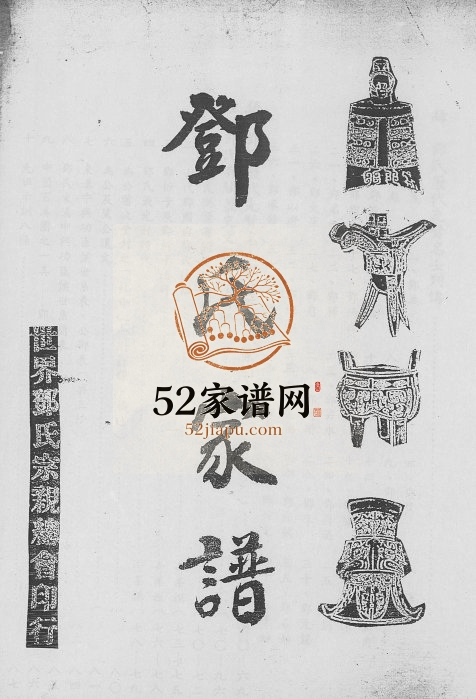 鄧
家譜
52家谱网
52jiapu.com
世界鄧氏宗親總會印行